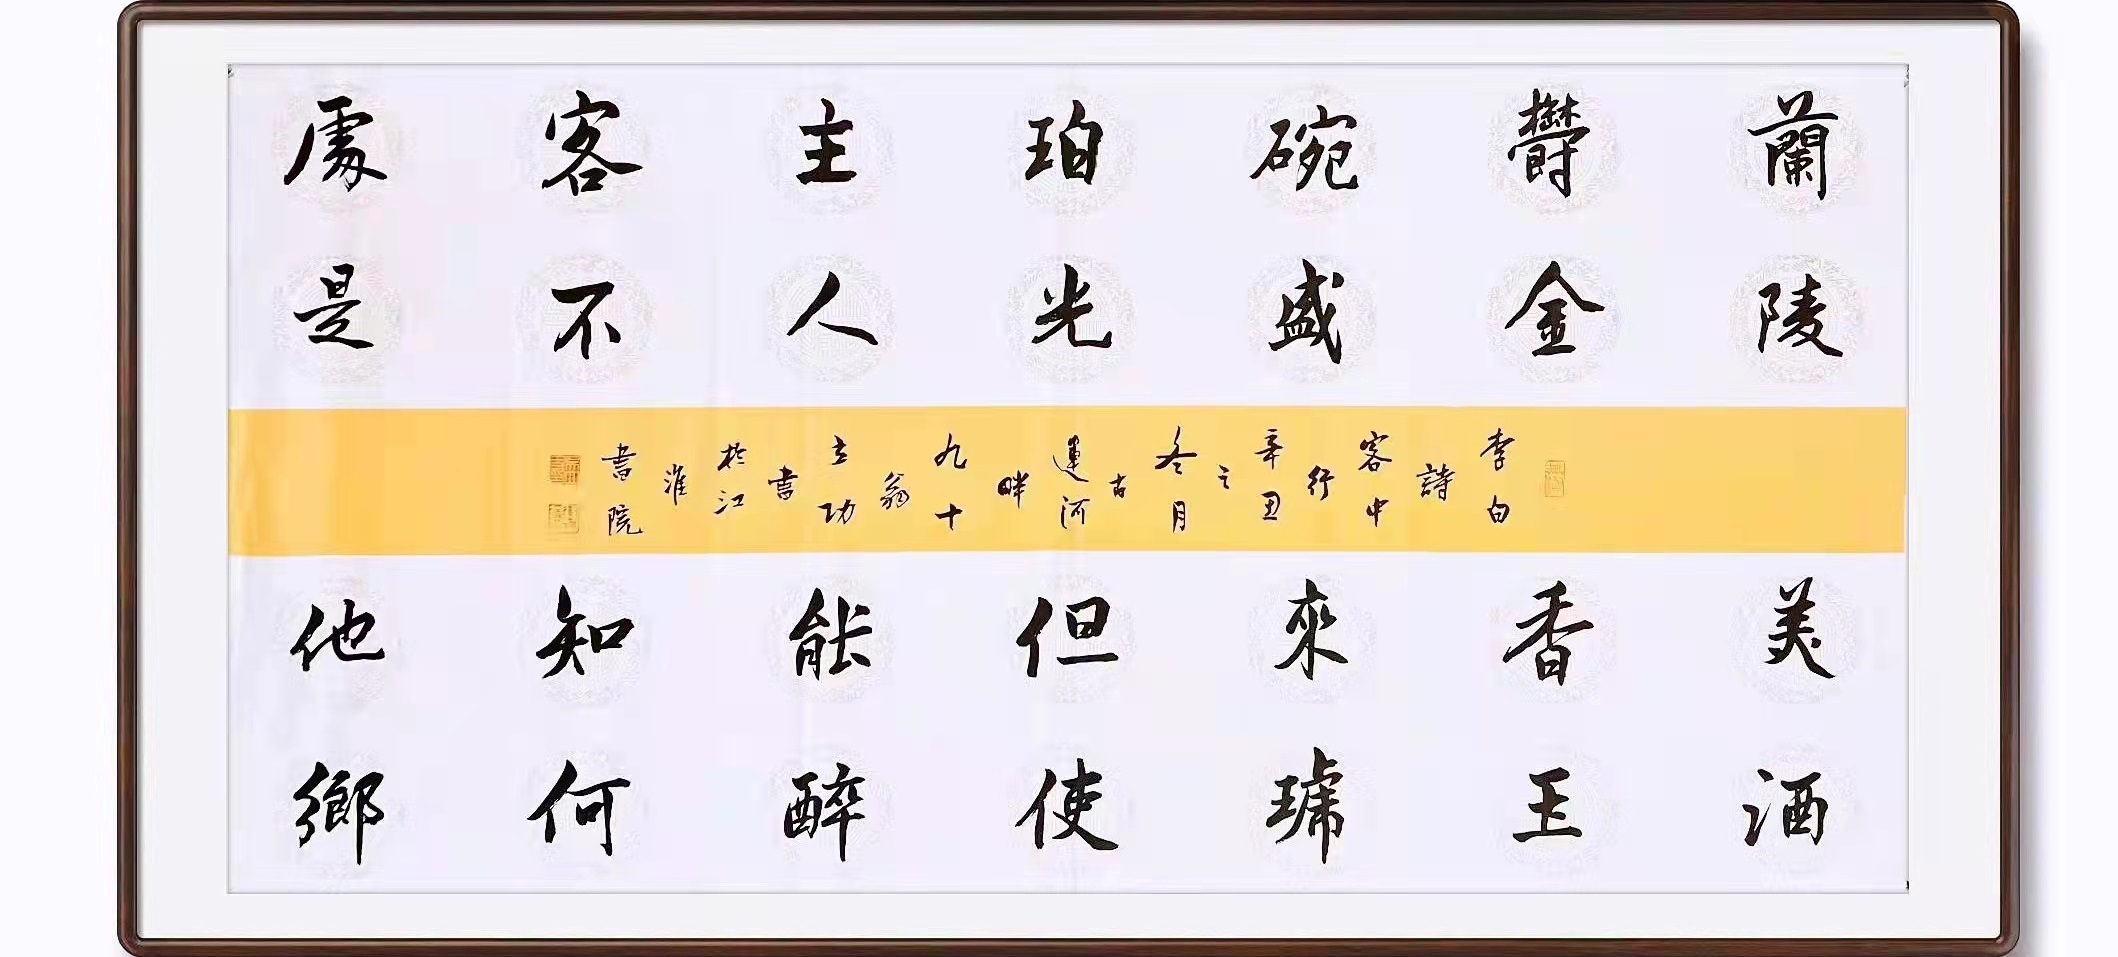 蘭陵美酒
鬱金香玉
碗盛來琥
珀光但使
主人能醉
客不知何
處是他鄉
李白詩客中行辛丑之冬月古運河畔九十翁立功書於江淮書院